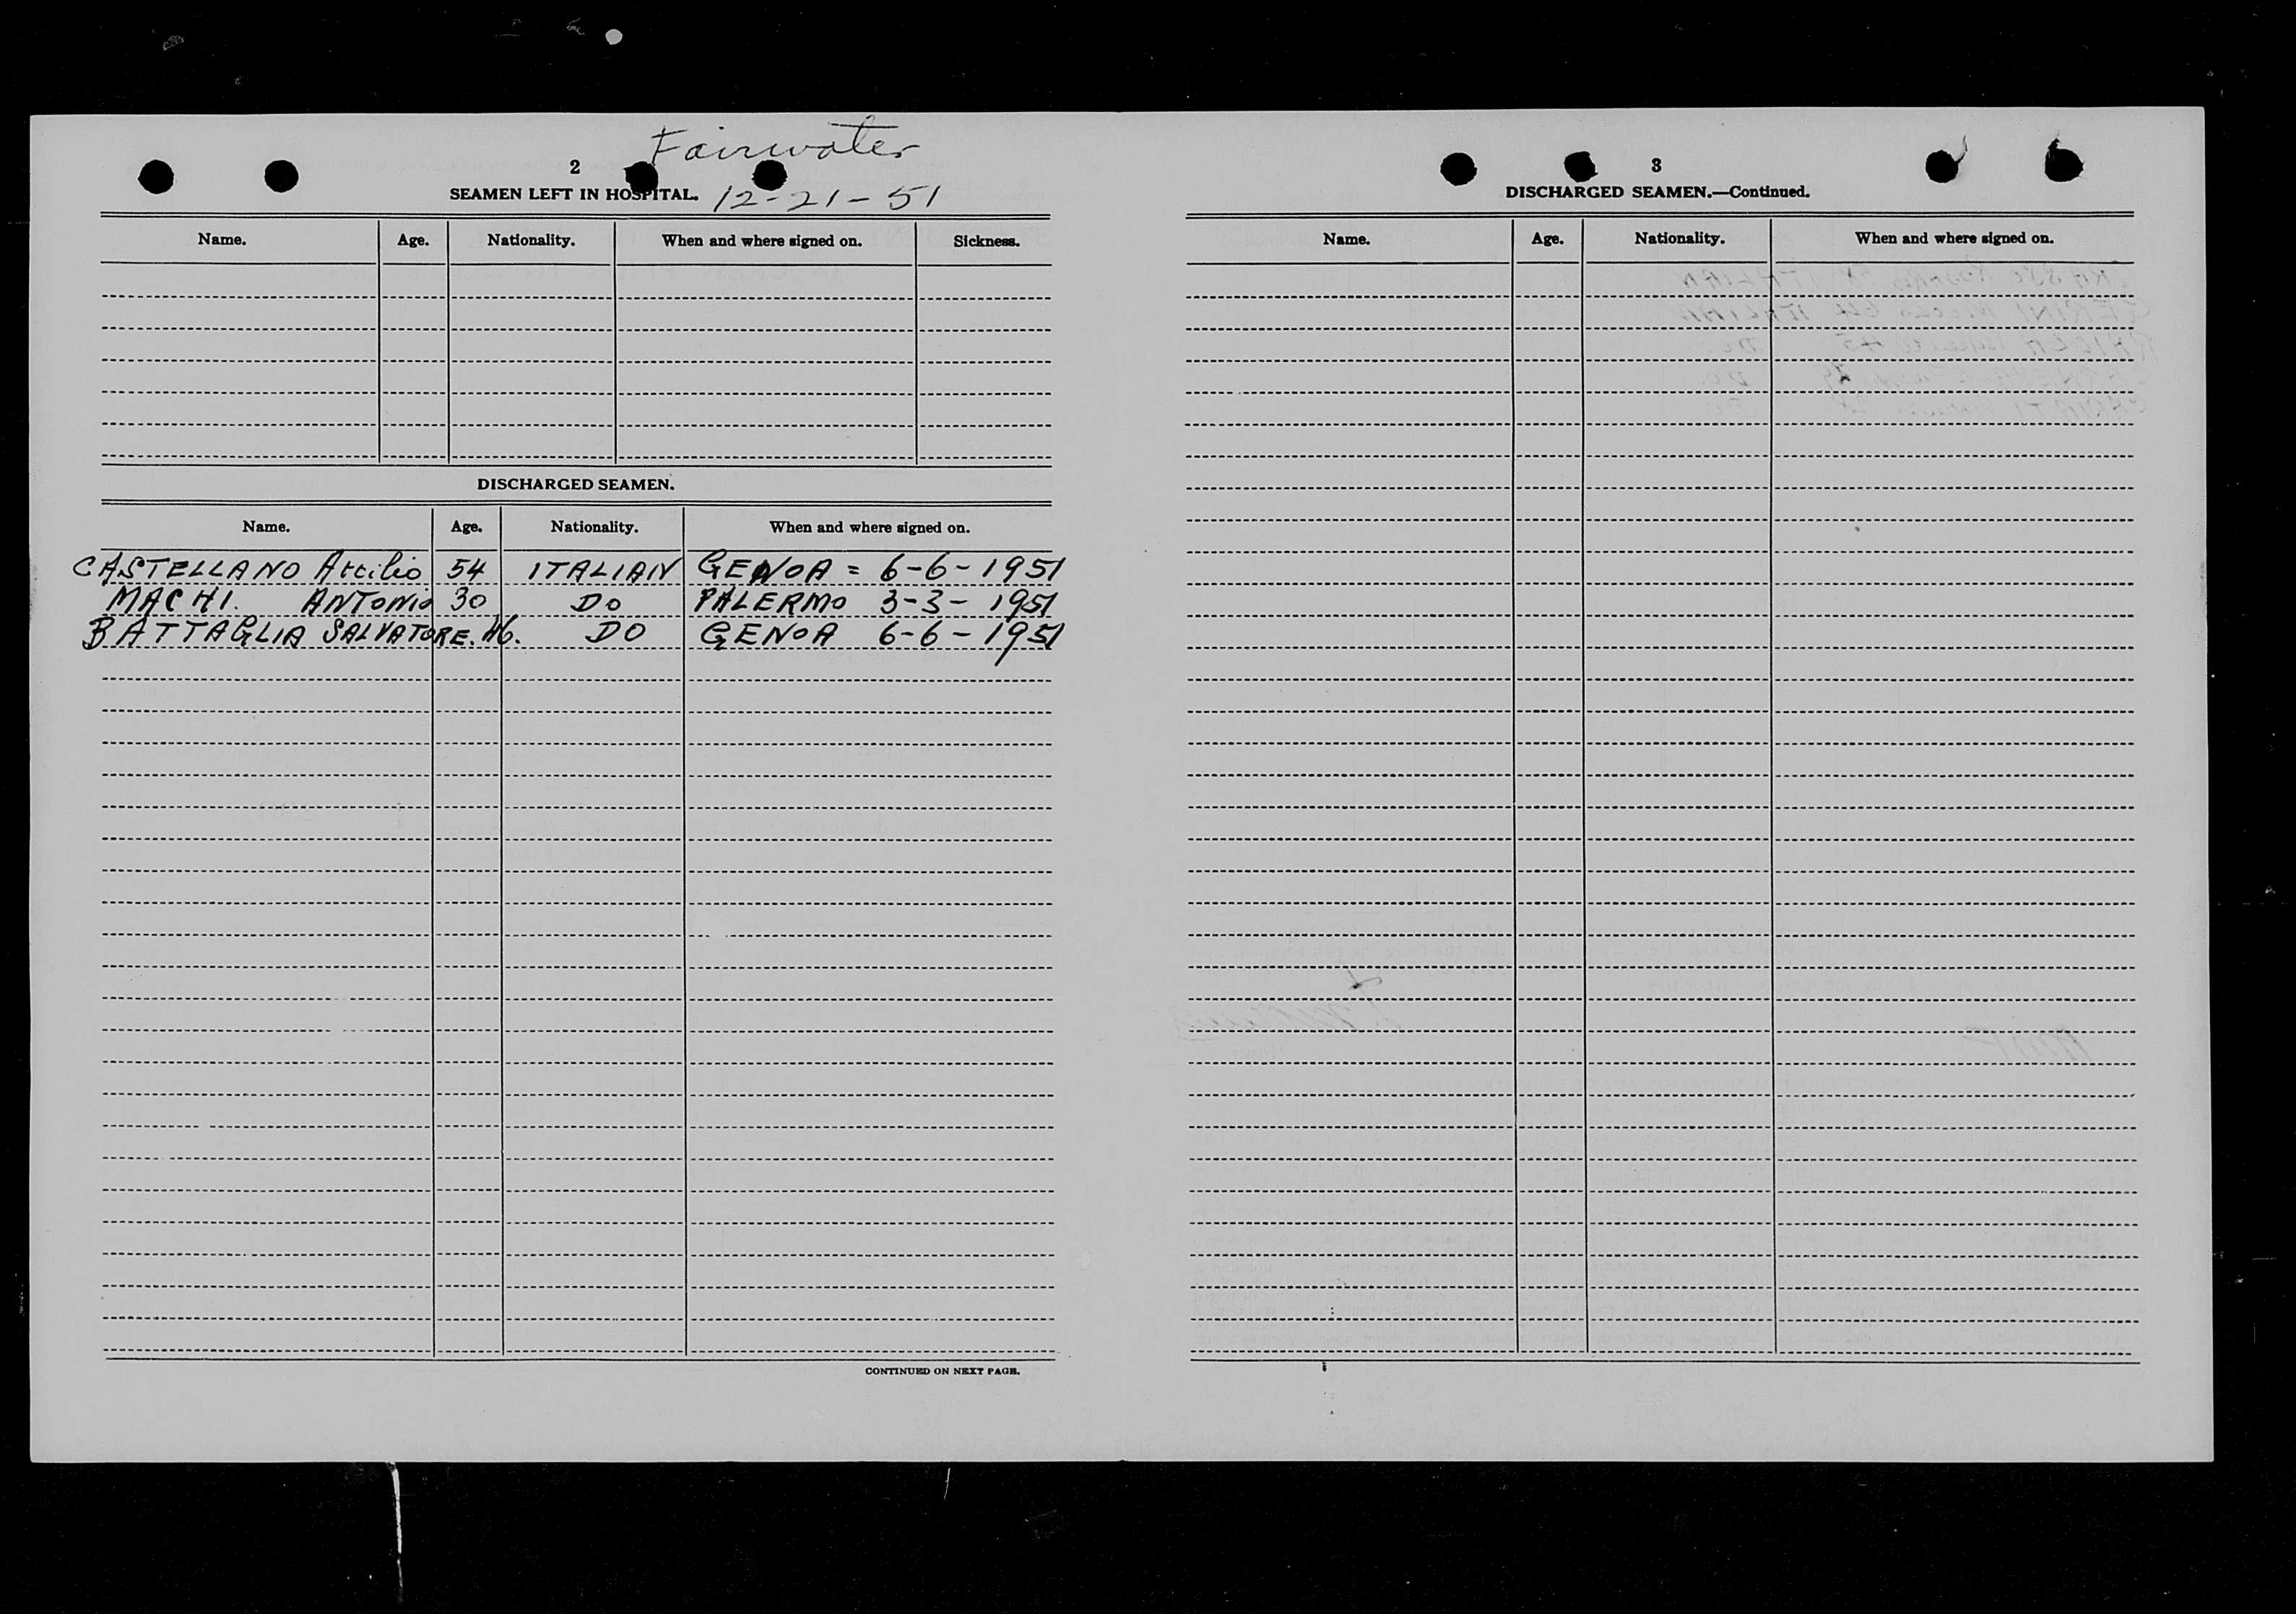 Fairwater
2
SEAMEN LEFT IN HOSPITAL. 12-21-51
Name. Age. Nationality. When and where signed on. Sickness.
DISCHARGED SEAMEN.
Name. Age. Nationality. When and where signed on.
CASTELLANO Attilio 54 ITALIAN GENOA = 6-6-1951
MACHI. ANTONIO 30 DO PALERMO 3-3-1951
BATTAGLIA SALVATORE. 46. DO GENOA 6-6-1951
CONTINUED ON NEXT PAGE.
3
DISCHARGED SEAMEN.—Continued.
Name. Age. Nationality. When and where signed on.